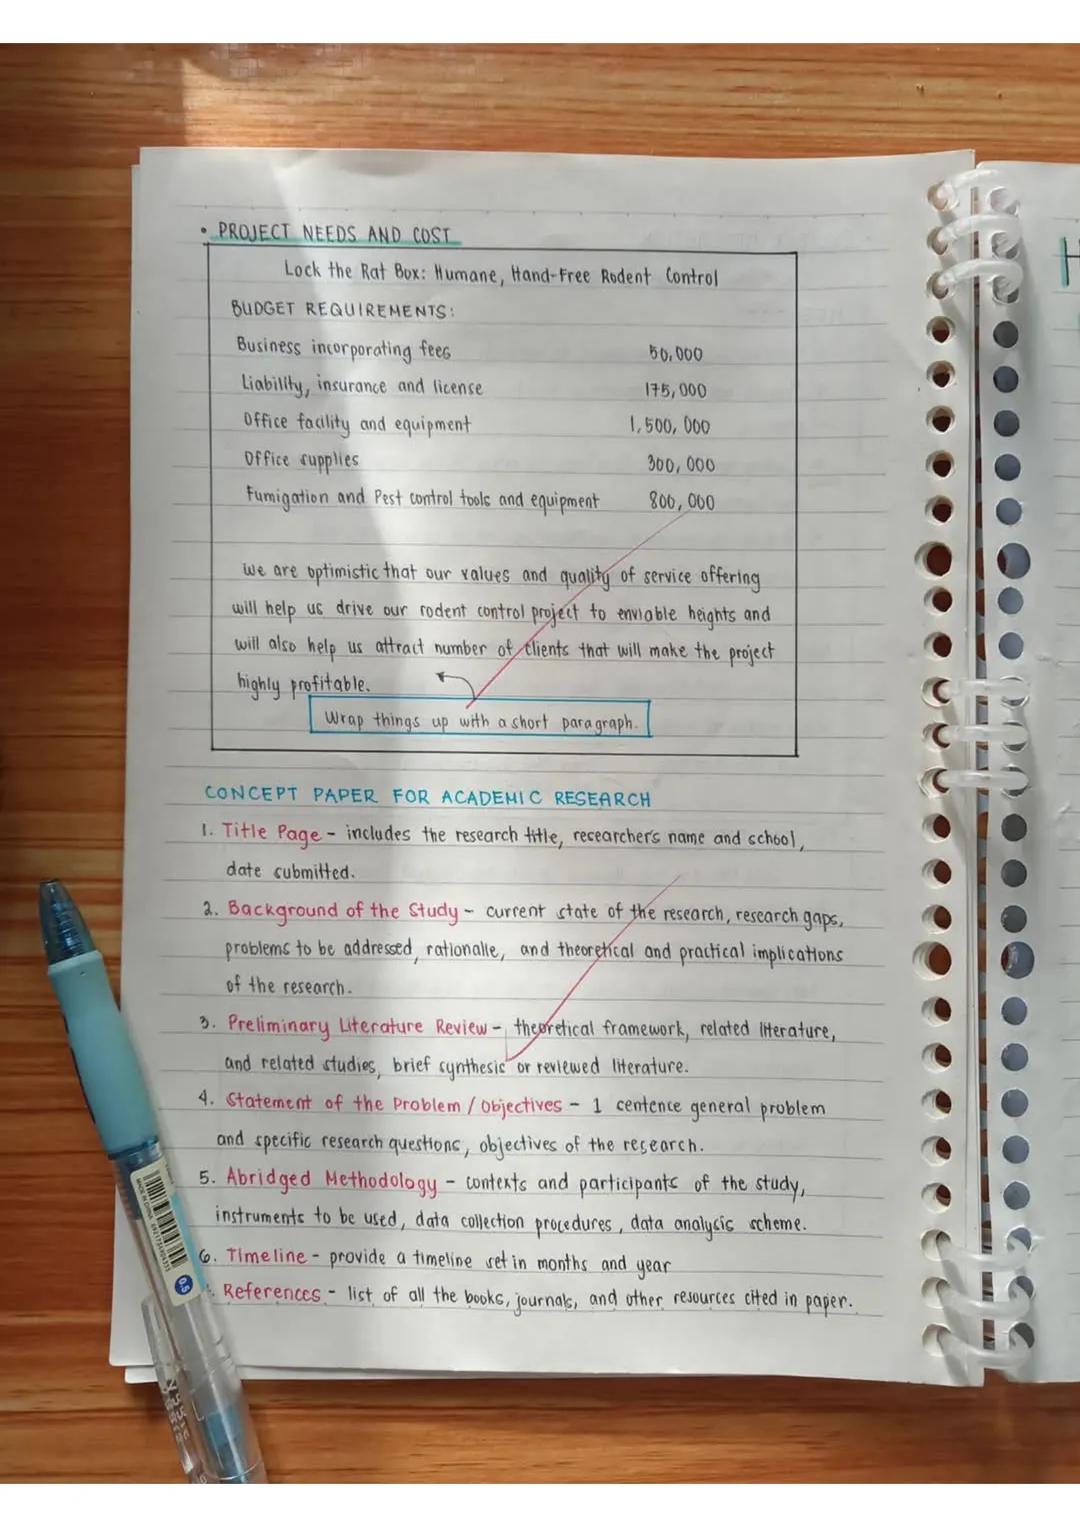 • PROJECT NEEDS AND COST
Lock the Rat Box: Humane, Hand-Free Rodent Control
BUDGET REQUIREMENTS:
Business incorporating fees 50,000
Liability, insurance and license 175,000
Office facility and equipment 1,500,000
Office supplies 300,000
Fumigation and Pest control tools and equipment 800,000
We are optimistic that our values and quality of service offering
will help us drive our rodent control project to enviable heights and
will also help us attract number of clients that will make the project
highly profitable.
Wrap things up with a short paragraph.
CONCEPT PAPER FOR ACADEMIC RESEARCH
1. Title Page - includes the research title, researcher's name and school,
date submitted.
2. Background of the Study - current state of the research, research gaps,
problems to be addressed, rationalle, and theoretical and practical implications
of the research.
3. Preliminary Literature Review - theoretical framework, related literature,
and related studies, brief synthesis or reviewed literature.
4. Statement of the Problem / Objectives - 1 sentence general problem
and specific research questions, objectives of the research.
5. Abridged Methodology - contexts and participants of the study,
instruments to be used, data collection procedures, data analysis scheme.
6. Timeline - provide a timeline set in months and year
. References - list of all the books, journals, and other resources cited in paper.
H
0.5